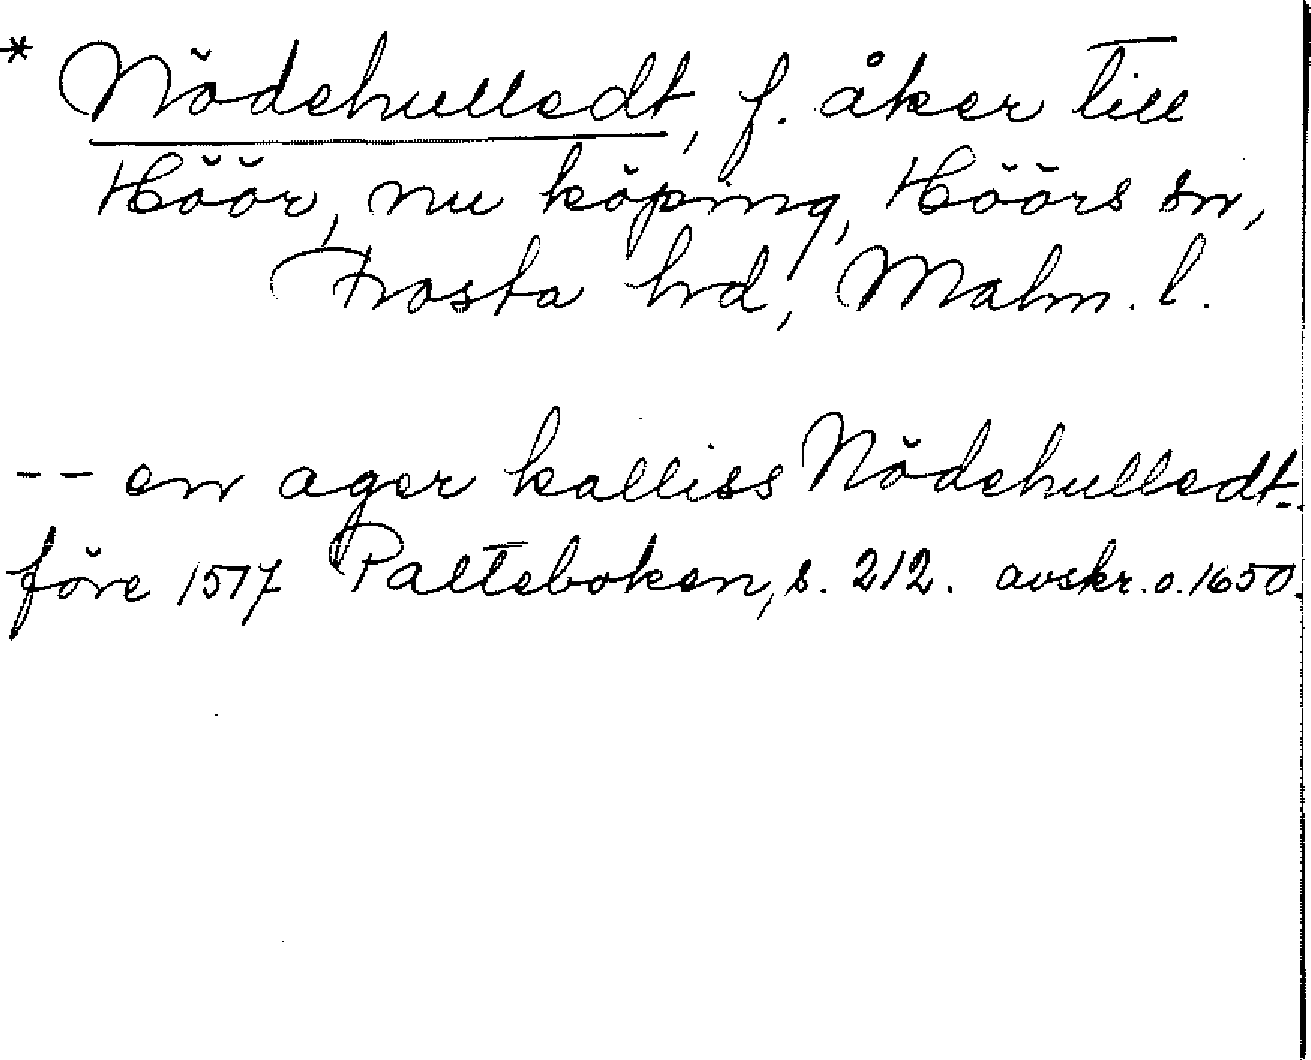 * Nödehulledt, f. åker till
Höör, nu köping, Höörs sn,
Frosta hrd, Malm. l.
-- en ager kalliss Nödehulledt.
före 1517 Palteboken, s. 212. avskr. o. 1650.